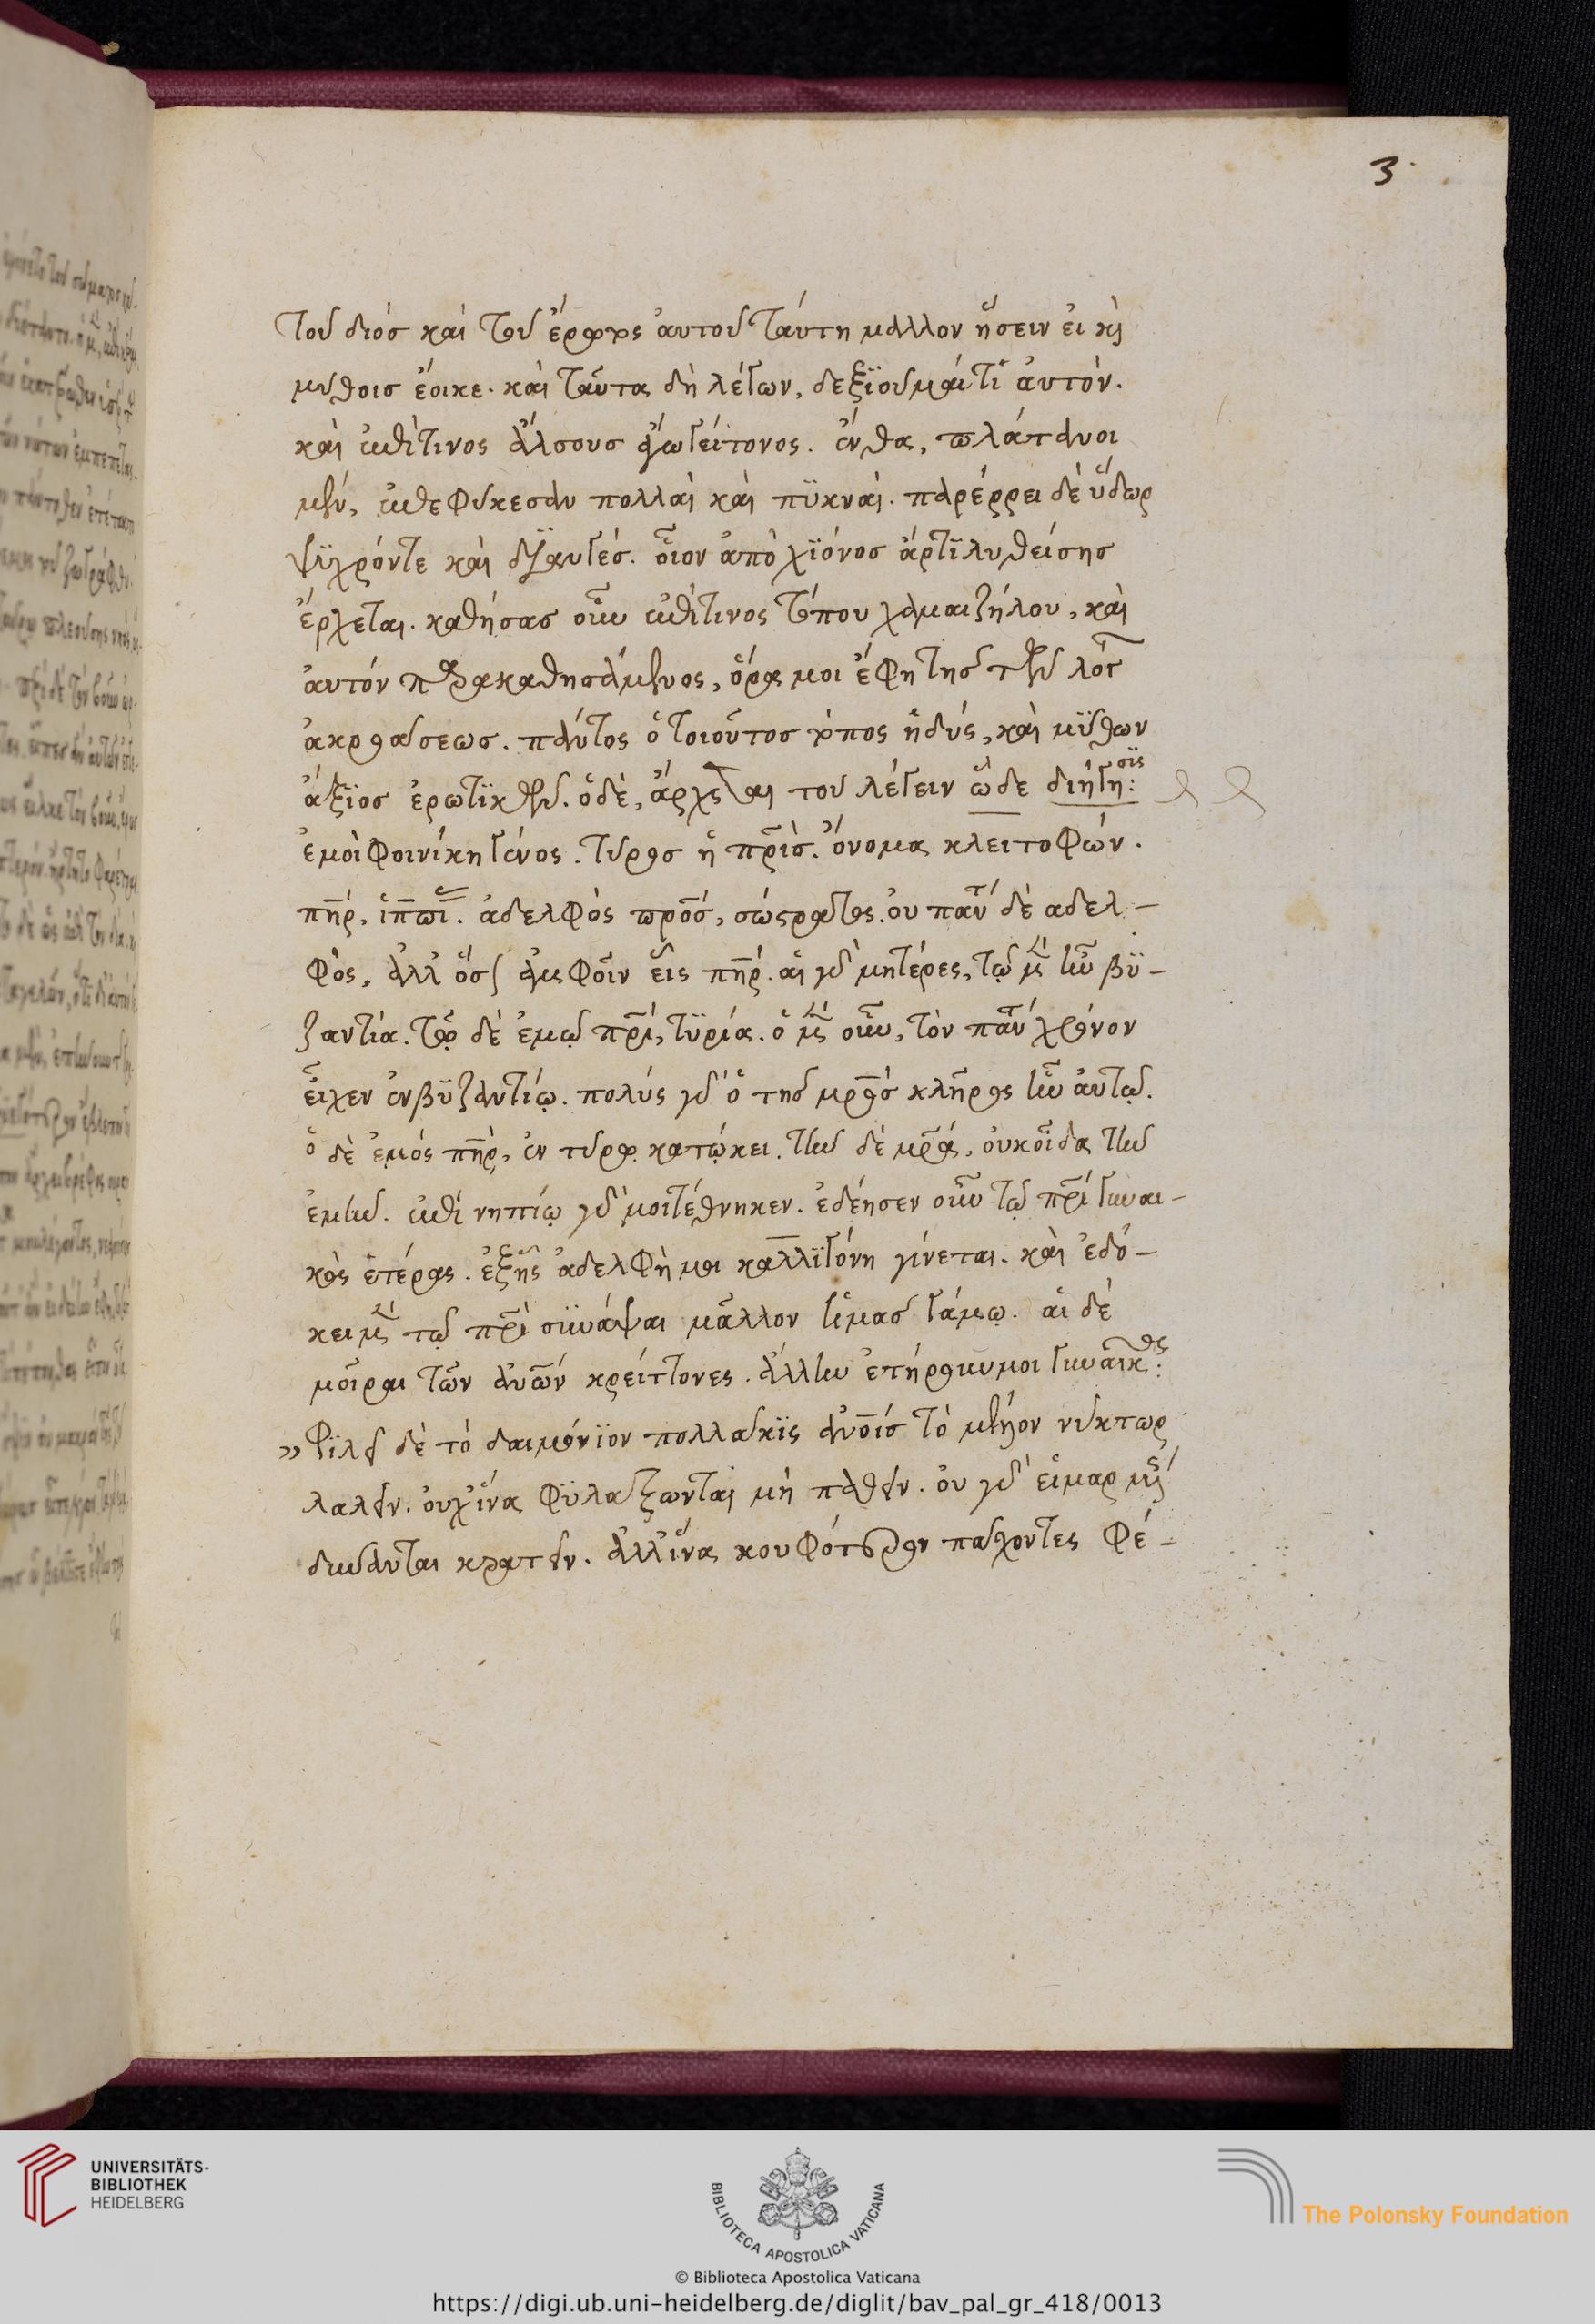 3
τοῦ διός καὶ τοῦ ἔρωτος αὐτοῦ ταύτη μᾶλλον ἥσειν εἰ καὶ
μύθοισ ἔοικε. καὶ ταῦτα δὴ λέγων, δεξϊοῦμαί τὲ αὐτόν.
καὶ ἐπί τινος ἄλσους ἄγω γείτονος. ἔνθα, πλάτανοι
μὲν, ἐπεφύκεσαν πολλαὶ καὶ πϋκναὶ. παρέρρει δὲ ὕδωρ
ψϋχρόν τε καὶ δϊαυγές. οἷον ἀπὸ χϊόνος ἄρτϊ λυθείσης
ἔρχεται. καθήσας οὖν ἐπί τινος τόπου χαμαιζήλου, καὶ
αὐτόν παρακαθησάμενος, ὅρα μοι ἔφη τῆς τῶν λόγ
ἀκροάσεως. πάντος ὁ τοιοῦτος τόπος ἡδύς, καὶ μύθων
ἄξϊος ἐρωτϊκῶν. ὁ δὲ, ἄρχεται τοῦ λέγειν ὧδε διήγησϊς:
ἐμοὶ φοινίκη γένος. τύρος ἡ πρίσ. ὄνομα κλειτοφῶν.
πηρ, ἱππωί. ἀδελφὸς προσ, σώστρατος. οὐ παν δὲ ἀδελ-
φὸς, ἀλλ' ὅσον ἀμφοῖν εἷς πηρ. αἱ γὰρ μητέρες, τῷ μὲν ἦν βϋ-
ζαντία. τῷ δὲ ἐμῷ πρι, τϋρία. ὁ μὲν οὖν, τὸν παν χρόνον
εἶχεν ἐν βϋζαντίῳ. πολύς γὰρ ὁ τῆς μρος κλῆρος ἦν αὐτῷ.
ὁ δὲ ἐμός πηρ, ἐν τύρῳ κατῴκει. τὴν δὲ μρα, οὐκ οἶδα τὴν
ἐμὴν. ἐπὶ νηπίῳ γὰρ μοι τέθνηκεν. ἐδέησεν οὖν τῷ πρι γυναι-
κὸς ἑτέρας. ἐξ ἧς ἀδελφὴ μοι καλλϊγόνη γίνεται. καὶ ἐδό-
κει μὲν τῷ πρι συνάψαι μᾶλλον ἡμᾶς γάμῳ. αἱ δὲ
μοῖραι τῶν ἀνων κρείττονες. ἄλλην ἐτήρουν μοι γυναῖκα:
» φϊλεῖ δὲ τὸ δαιμόνϊον πολλάκϊς ἀνοις τὸ μέλλον νύκτωρ
λαλεῖν. οὐχ ἵνα φϋλάξωνται μὴ παθεῖν. οὐ γὰρ εἱμαρμένης
δύνανται κρατεῖν. ἀλλ' ἵνα κουφότερον πάσχοντες φέ-
UNIVERSITÄTS-
BIBLIOTHEK
HEIDELBERG
BIBLIOTECA APOSTOLICA VATICANA
The Polonsky Foundation
© Biblioteca Apostolica Vaticana
https://digi.ub.uni-heidelberg.de/diglit/bav_pal_gr_418/0013